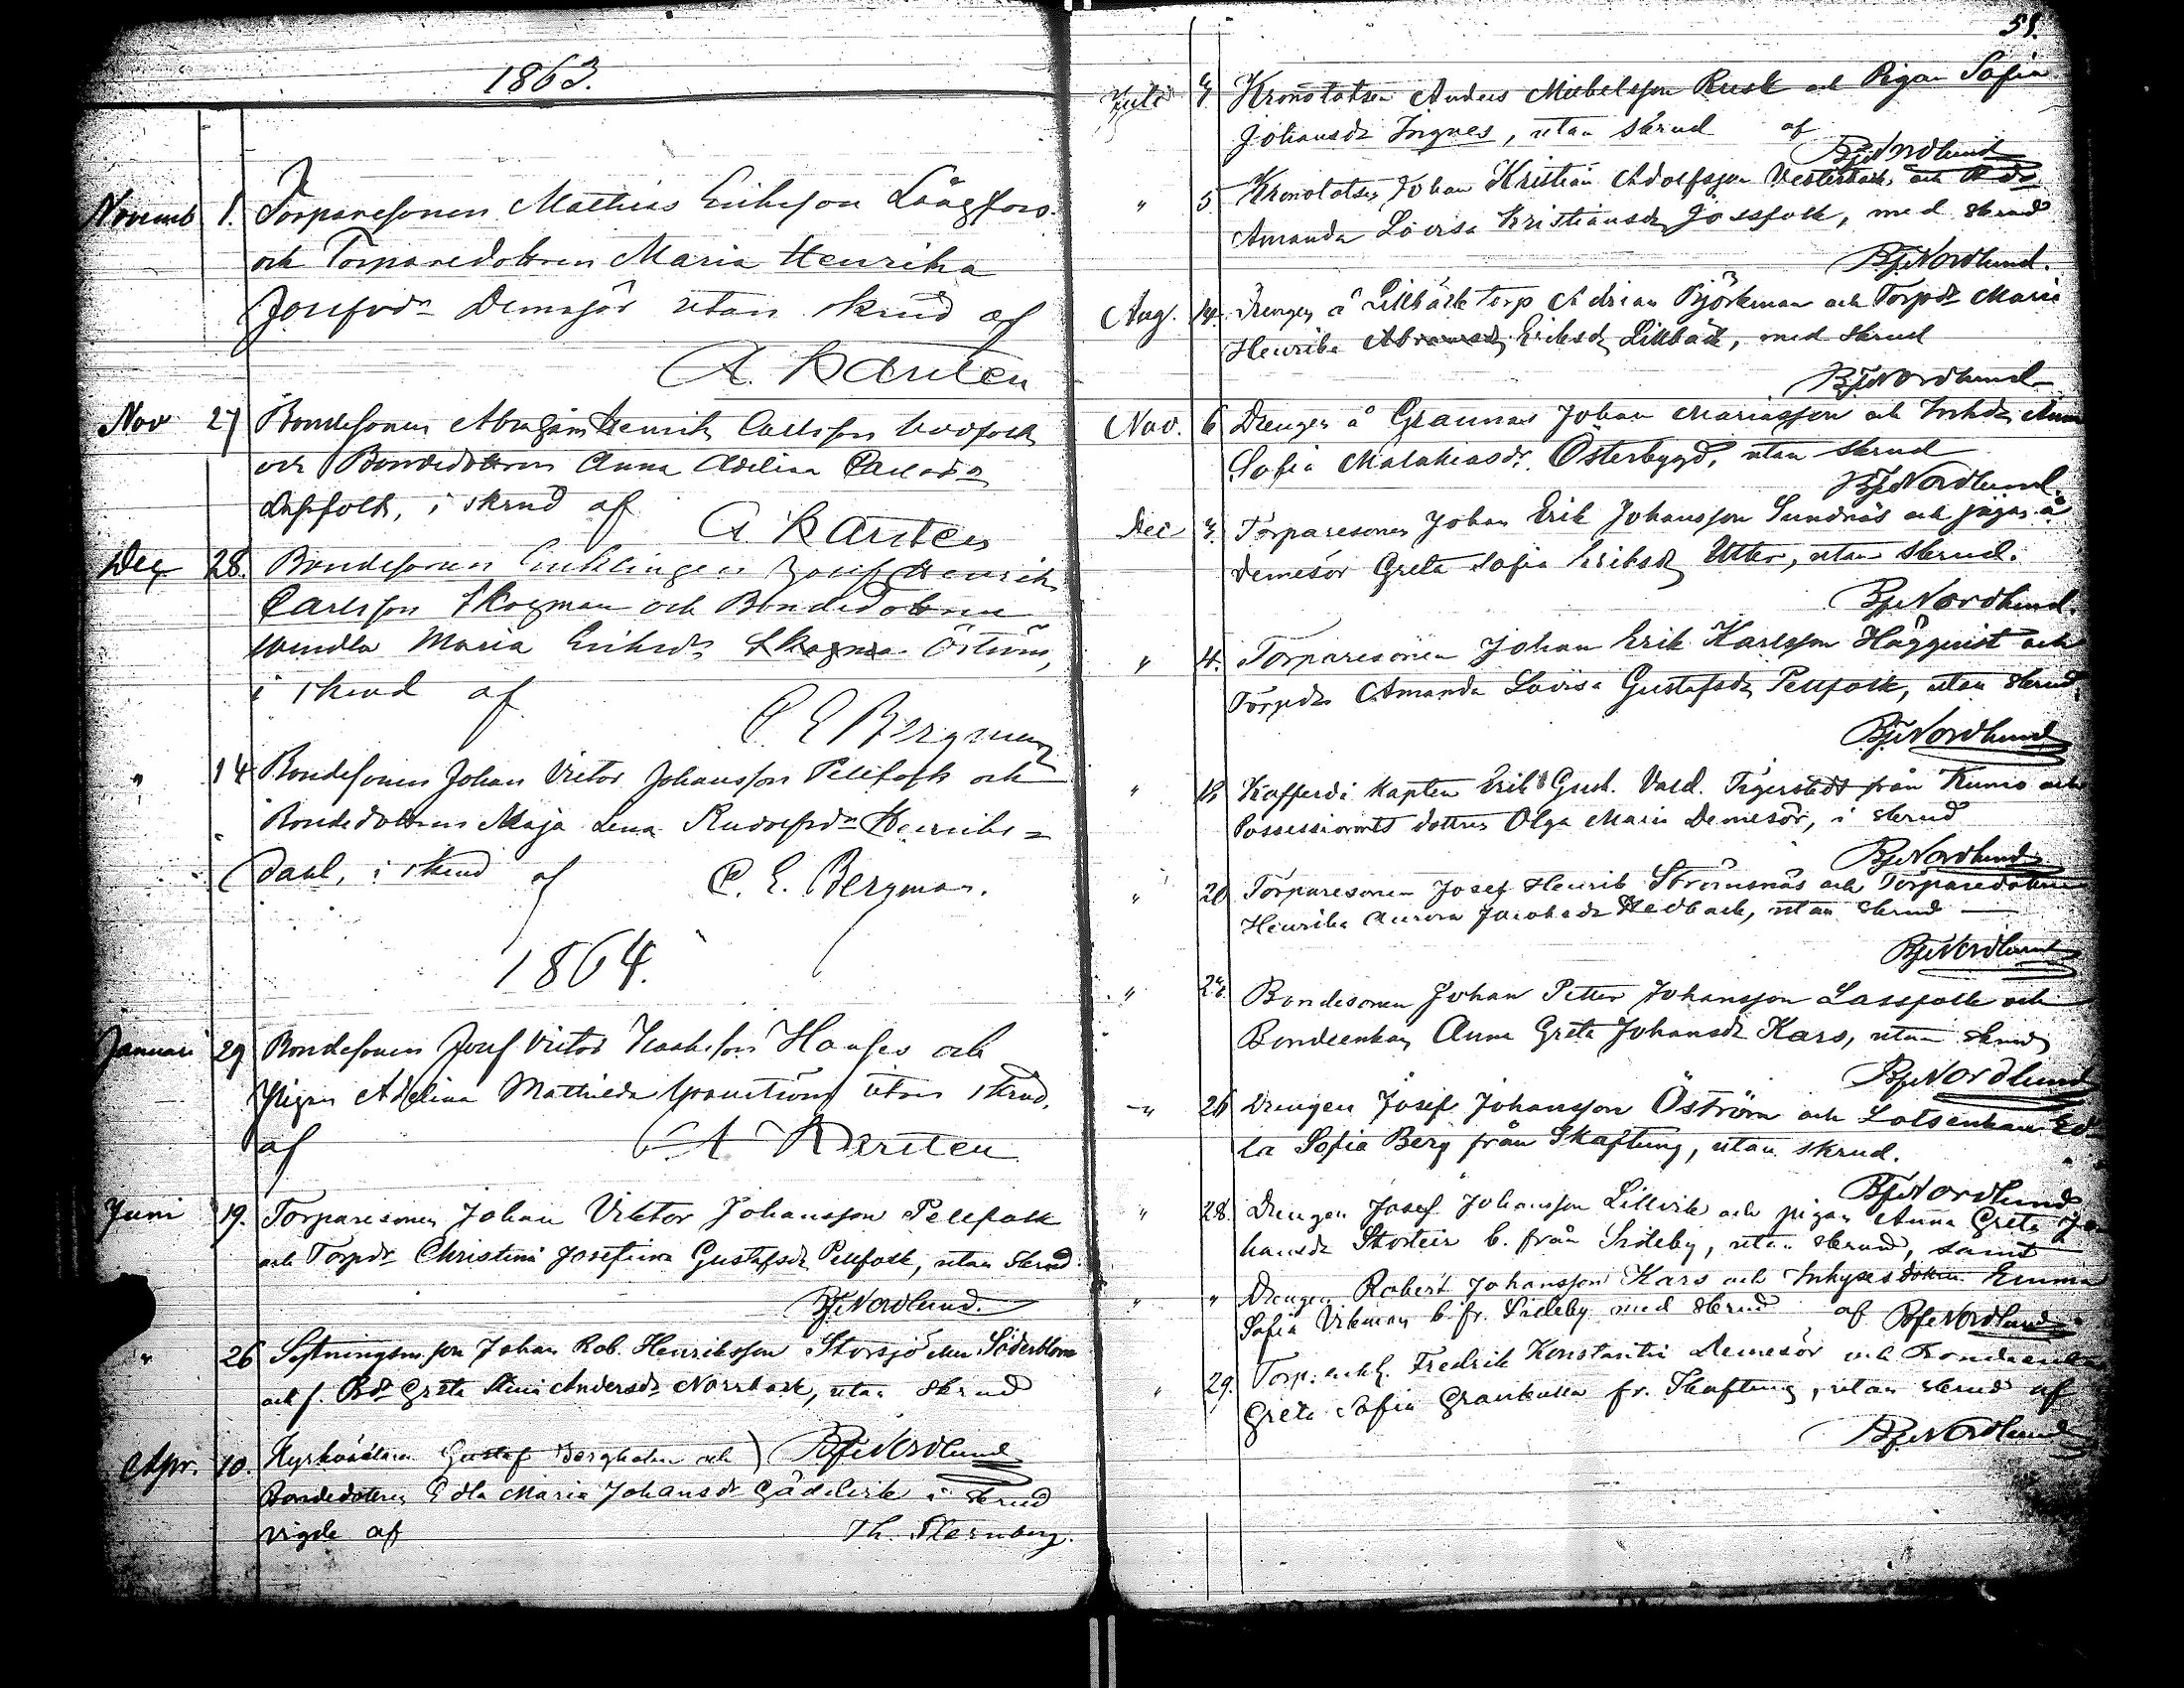 1863.
Novemb 1. Torparesonen Mathias Eriksson Långfors
och Torparedottren Maria Henrika
Josefsdr Demesör utan skrud af
A. Karsten
Nov 27 Bondesonen Abraham Henrik Carlsson
och Bondedottren Anna Adelina Carlsdr
i skrud af
A. Karsten
Dec 28. Bondesonen Enklingen Josef Henrik
Carlsson Skogman och Bondedottren
Wendla Maria Eriksdr Öström,
i skrud af
C E Bergman
" 14 Bondesonen Johan Victor Johansson Pellfolk och
Bondedottren Maja Lena Rudolfsdr Henriks=
dahl, i skrud af C. E. Bergman.
1864.
Januari 29 Bondesonen Josef Victor Isaksson och
Pigan Adelina Mathilda utan skrud,
af A Karsten
Juni 19. Torparesonen Johan Viktor Johansson Pellfolk
och Torpdr Christina Josefina Gustafsdr Pellfolk, utan skrud.
BjNordlund.
" 26 Johan Rob. Henriksson Storsjö eller Söderblom
och f. Bdr Greta Stina Andersdr Norrback, utan skrud
Apr. 10. Kyrkovärden Gustaf Bergholm och ) BjNordlund
Bondedottren Edla Maria Johansdr i skrud
vigde af Th. Sternberg.
51.
Juli 4 Kronolotsen Anders Mickelsson Rusk och Pigan Sofia
Johansdr Ingves, utan skrud af
BjNordlund
" 5. Kronolotsen Johan Kristian Adolfsson Vesterback och Bdr
Amanda Lovisa Kristiansdr Jossfolk, med skrud
BjNordlund.
Aug. 14. Drengen å Lillbäck torp Adrian Björkman och Torpdr Maria
Henrika Eriksdr Lillbäck, med skrud
BjNordlund
Nov. 6 Drengen å Grannas Johan Mariasson och Inhdr Anna
Sofia Malakiasdr Österbygd, utan skrud
BjNordlund.
Dec 4. Torparesonen Johan Erik Johansson Sundnäs och pigan å
Demesör Greta Sofia Eriksdr Utter, utan skrud.
BjNordlund.
" 4. Torparesonen Johan Erik Karlsson Häggqvist och
Torpdr Amanda Lovisa Gustafsdr Pellfolk, utan skrud,
BjNordlund
" 13 Kofferdi kapten Erik Gust. Vald. Tigerstedt från Kumo och
Possessionats dottren Olga Maria Demesör, i skrud
BjNordlund
" 20 Torparesonen Josef Henrik Strömsnäs och Torparedottren
Henrika Aurora Jacobsdr Hedback, utan skrud
BjNordlund
" 26. Bondesonen Johan Petter Johansson Lassfolk och
Bondeenkan Anna Greta Johansdr Kars, utan skrud
BjNordlund
" 26 Drengen Josef Johansson Öström och Lotsenkan Ed-
la Sofia Berg från Skaftung, utan skrud.
BjNordlund
" 28. Drengen Josef Johansson Lillvik och pigan Anna Greta Jo-
hansdr b. från Sideby, utan skrud, samt
" " Drengen Robert Johansson Kars och Inhysesdottren Emma
Sofia Vikman b. fr. Sideby med skrud af BjNordlund
" 29. Torp. enkl. Fredrik Konstantin Demesör och Bondeenkan
Greta Sofia Grankulla fr. Skaftung, utan skrud af
BjNordlund